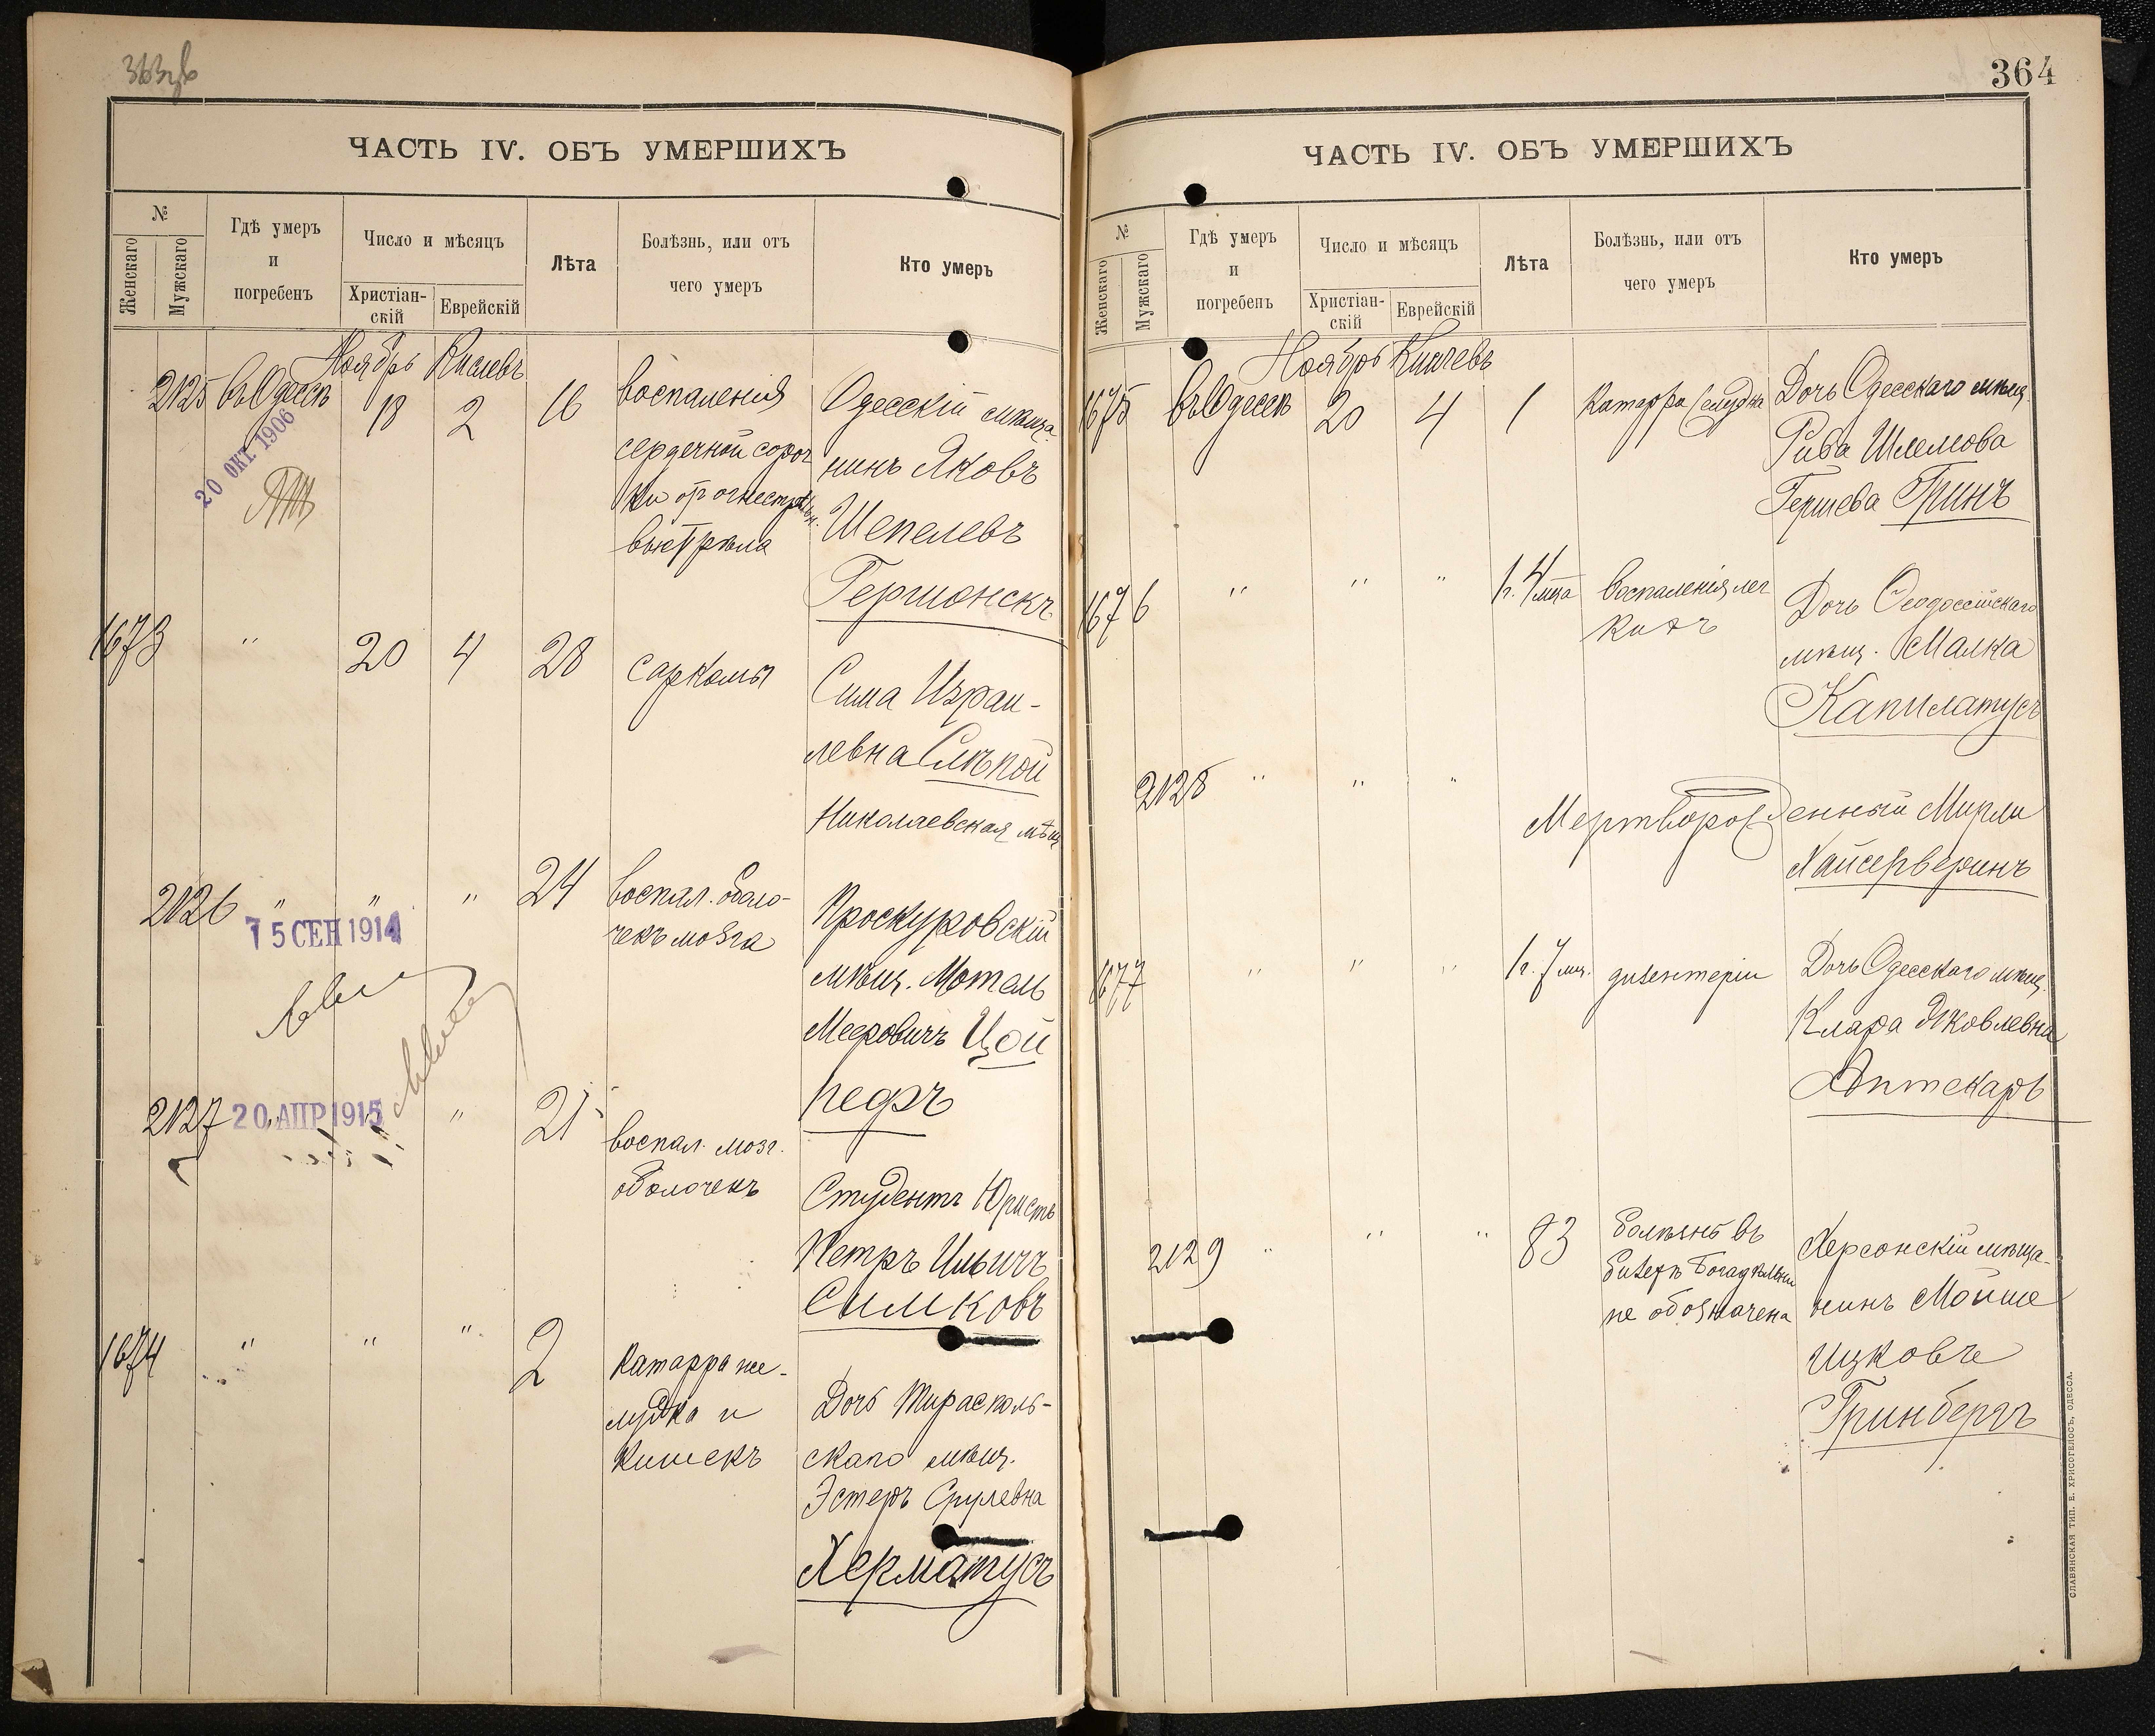 ЧАСТЬ IV. ОБЪ УМЕРШИХЪ
№
Женскаго
Мужскаго
Гдѣ умеръ
и
погребенъ
Число и мѣсяцъ
Христіан-
скій
Еврейскій
Лѣта
Болѣзнь, или отъ
чего умеръ
Кто умеръ
Ноябрь Кислевъ
2125 въ Одессѣ 18 2 16
20 ОКТ 1906
воспаленія
сердечной сороч
ки от огнестрѣльн.
выстрѣла
Одесскій мѣща-
нинъ Яковъ
Шепелевъ
Гершонскъ
1673 " 20 4 28 саркомы
Сима Израи-
левна Слѣпой
Николаевская мѣщ
2126 " " " 24
15 СЕН 1914
воспал. оболо-
чекъ мозга
Проскуровскій
мѣщ. Мотель
Мееровичъ Цой
2127 " 21
20 АПР 1915
воспал. мозг.
оболочекъ
Студентъ Юристъ
Петръ Ильичъ
Симковъ
1674 " " " 2
Катарра же-
лудка и
кишекъ
Дочь Тирасполь-
скаго мѣщ.
Эстеръ Срулевна
Херматусъ
364
ЧАСТЬ IV. ОБЪ УМЕРШИХЪ
№
Женскаго
Мужскаго
Гдѣ умеръ
и
погребенъ
Число и мѣсяцъ
Христіан-
скій
Еврейскій
Лѣта
Болѣзнь, или отъ
чего умеръ
Кто умеръ
Ноябрь Кислевъ
1675 въ Одессѣ 20 4 1 Катарра желудка
Дочь Одесскаго мѣщ.
Рива Шлемова
Гершева Гринъ
1676 " " " 1г. 4 мца
воспаленія лег
кихъ
Дочь Ѳеодосійскаго
мѣщ. Малка
Капилатусъ
2128 " " "
Мертворожденный Мирли
Хайсерверинъ
1677 " " " 1г. 7 мц. дизентеріи
Дочь Одесскаго мѣщ.
Клара Яковлевна
Аптекарь
2129 " " " 83
болѣзнь въ
билетѣ Богадѣльни
не обозначена
Херсонскій мѣща-
нинъ Мойше
Ицковъ
Гринбергъ
СЛАВЯНСКАЯ ТИП. Е. ХРИСОГЕЛОСЪ, ОДЕССА.